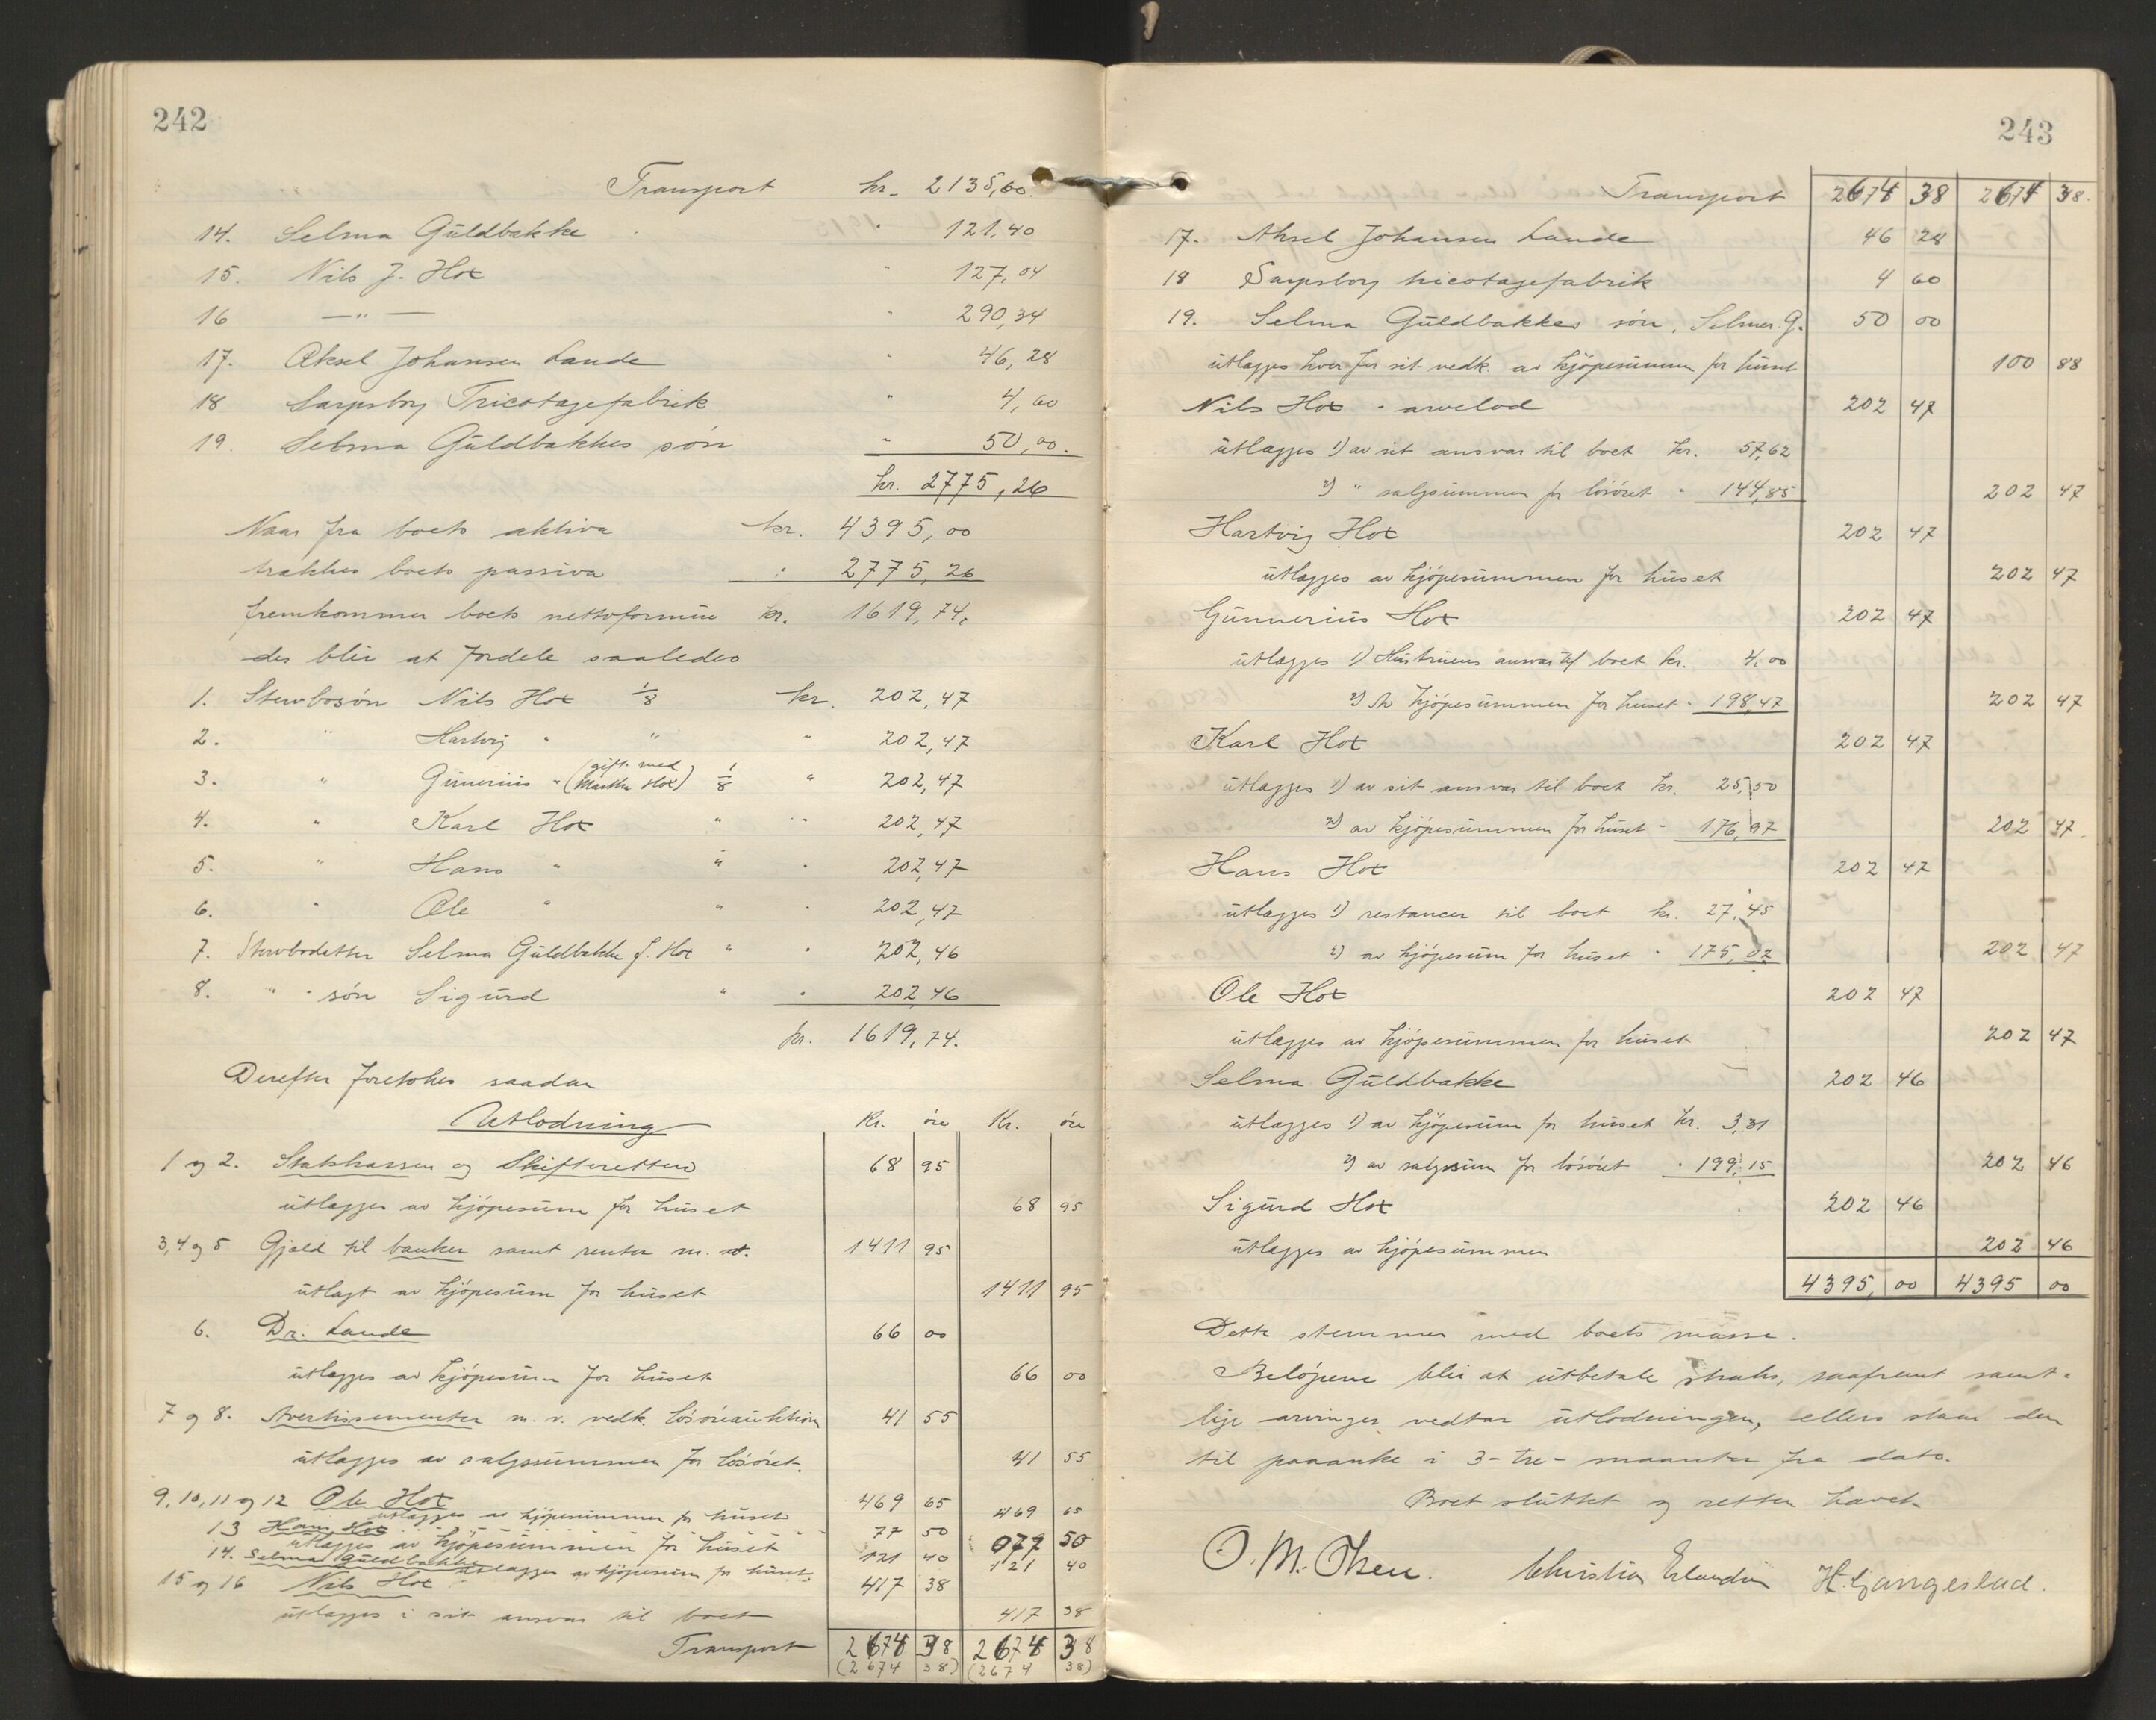 242
Transport kr. 2135,60.
14. Selma Güldbakke " 121,40
15. Nils J. Hox " 127,04
16 —"— " 290,34
17. Aksel Johansen Lande " 46,28
18 Sarpsborg Tricotagefabrik " 4,60
19. Selma Güldbakkes søn " 50,00.
kr. 2775,26
Naar fra boets aktiva kr. 4395,00
trækkes boets passiva " 2775,26
fremkommer boets nettoformue kr. 1619,74.
der blir at fordele saaledes
1. Stervbosøn Nils Hox 1/8 kr. 202,47
2. " Hartvig " " " 202,47
3. " Günerius " (gift med Marthe Hox) 1/8 " 202,47
4. " Karl Hox " " 202,47
5. " Hans " " " 202,47
6. " Ole " " " 202,47
7. Stervbodatter Selma Güldbakke f. Hox " " 202,46
8. " " søn Sigurd " " 202,46
kr. 1619,74.
Derefter foretokes saadan
Utlodning Kr. öre Kr. öre
1 og 2. Statskassen og Skifteretten 68 95
utlægges av kjöpesum for huset 68 95
3, 4 og 5 Gjæld til banker samt renter m. v. 1411 95
utlagt av kjöpesum for huset 1411 95
6. Dr. Lande 66 00
utlægges av kjöpesum for huset 66 00
7 og 8. Avertissementer m. v. vedk. lösöreauktion 41 55
utlægges av salgssummen for lösöret. 41 55
9, 10, 11 og 12 Ole Hox 469 65
utlægges av kjöpesummen for huset 469 65
13 Hans Hox 77 50
utlægges av kjöpesummen for huset 077 50
14. Selma Güldbakke utlægges av kjöpesum for huset 121 40 121 40
15 og 16 Nils Hox 417 38
utlægges i sit ansvar til boet 417 38
Transport 2674 38 2674 38
(2674 38) (2674 38)
243
Transport 2674 38 2674 38.
17. Aksel Johansen Lande 46 28
18 Sarpsborg tricotagefabrik 4 60
19. Selma Güldbakkes søn, Selmer G. 50 00
utlægges hver for sit vedk. av kjöpesummen for huset 100 88
Nils Hox - arvelod 202 47
utlægges 1) av sit ansvar til boet kr. 57,62
2) " salgssummen for lösöret " 144,85 202 47
Hartvig Hox 202 47
utlægges av kjöpesummen for huset 202 47
Günnerius Hox 202 47
utlægges 1) Hustruens ansvar til boet kr. 4,00
2) av kjöpesummen for huset " 198,47 202 47
Karl Hox 202 47
utlægges 1) av sit ansvar til boet kr. 25,50
2) av kjöpesummen for huset " 176,97 202 47.
Hans Hox 202 47
utlægges 1) restancer til boet kr. 27,45
2) av kjöpesum for huset " 175,02 202 47
Ole Hox 202 47
utlægges av kjöpesummen for huset 202 47
Selma Güldbakke 202 46
utlægges 1) av kjöpesum for huset kr. 3,31
2) av salgssum for lösöret " 199,15 202 46
Sigurd Hox 202 46
utlægges av kjöpesummen 202 46
4395,00 4395 00
Dette stemmer med boets masse.
Belöpene blir at utbetale straks, saafremt samt-
lige arvinger vedtar utlodningen, ellers staar den
til paaanke i 3- tre - maaneter fra dato.
Boet sluttet og retten hævet.
O. M. Olsen. Christian Erlandsen H. Gangeslad.